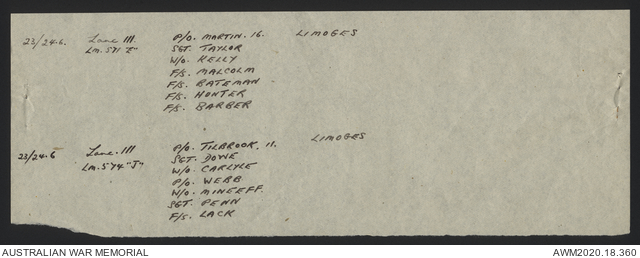 23/24.6. Lanc III. P/O. MARTIN. 16. LIMOGES
LM. 571 "E" SGT. TAYLOR
W/O. KELLY
F/S. MALCOLM
F/S. BATEMAN
F/S. HONTER
F/S. BARBER
23/24.6 Lanc. III P/O. TILBROOK. 11. LIMOGES
LM. 574 "J" SGT. DOWE
W/O. CARLYLE
P/O. WEBB
W/O. MINEEFF.
SGT. PENN
F/S. LACK
AUSTRALIAN WAR MEMORIAL AWM2020.18.360